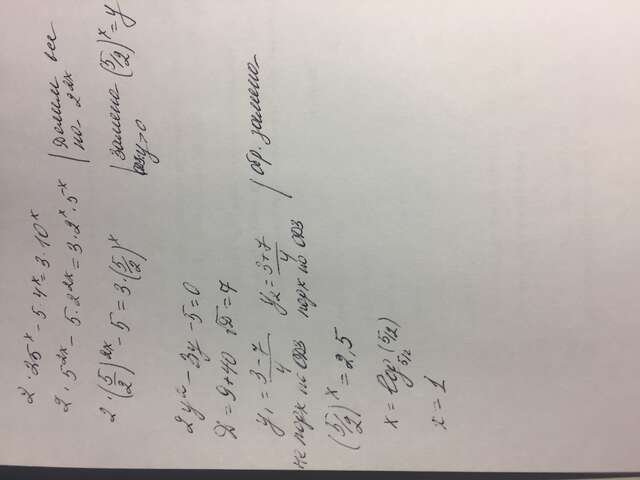 2·25^x - 5·4^x = 3·10^x
2·5^{2x} - 5·2^{2x} = 3·2^x·5^x | Делим все
на 2^{2x}
2·(5/2)^{2x} - 5 = 3·(5/2)^x | замена (5/2)^x = y
ОДЗ: y>0
2y² - 3y - 5 = 0
D = 9+40 √D = 7
y₁ = (3-7)/4 y₂ = (3+7)/4 | обр. замена
не подх по ОДЗ подх по ОДЗ
(5/2)^x = 2,5
x = log_{5/2}(5/2)
x = 1